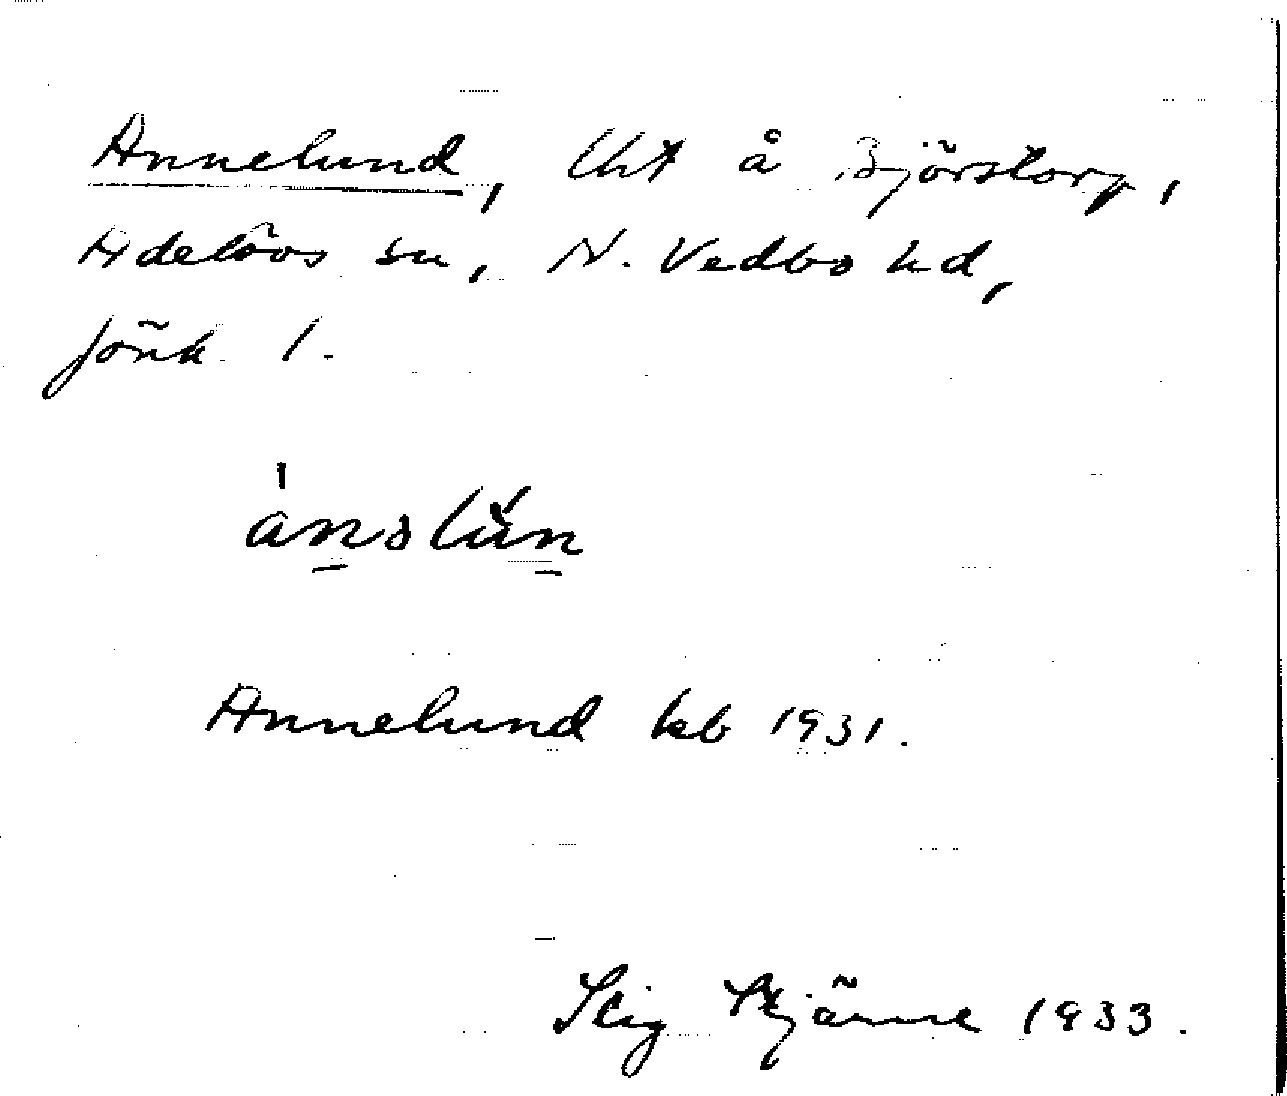 Annelund, lht å Björstorp,
Adelövs sn, N. Vedbo hd,
Jönk. l.
Annelund kb 1931.
Stig Stjärne 1933.